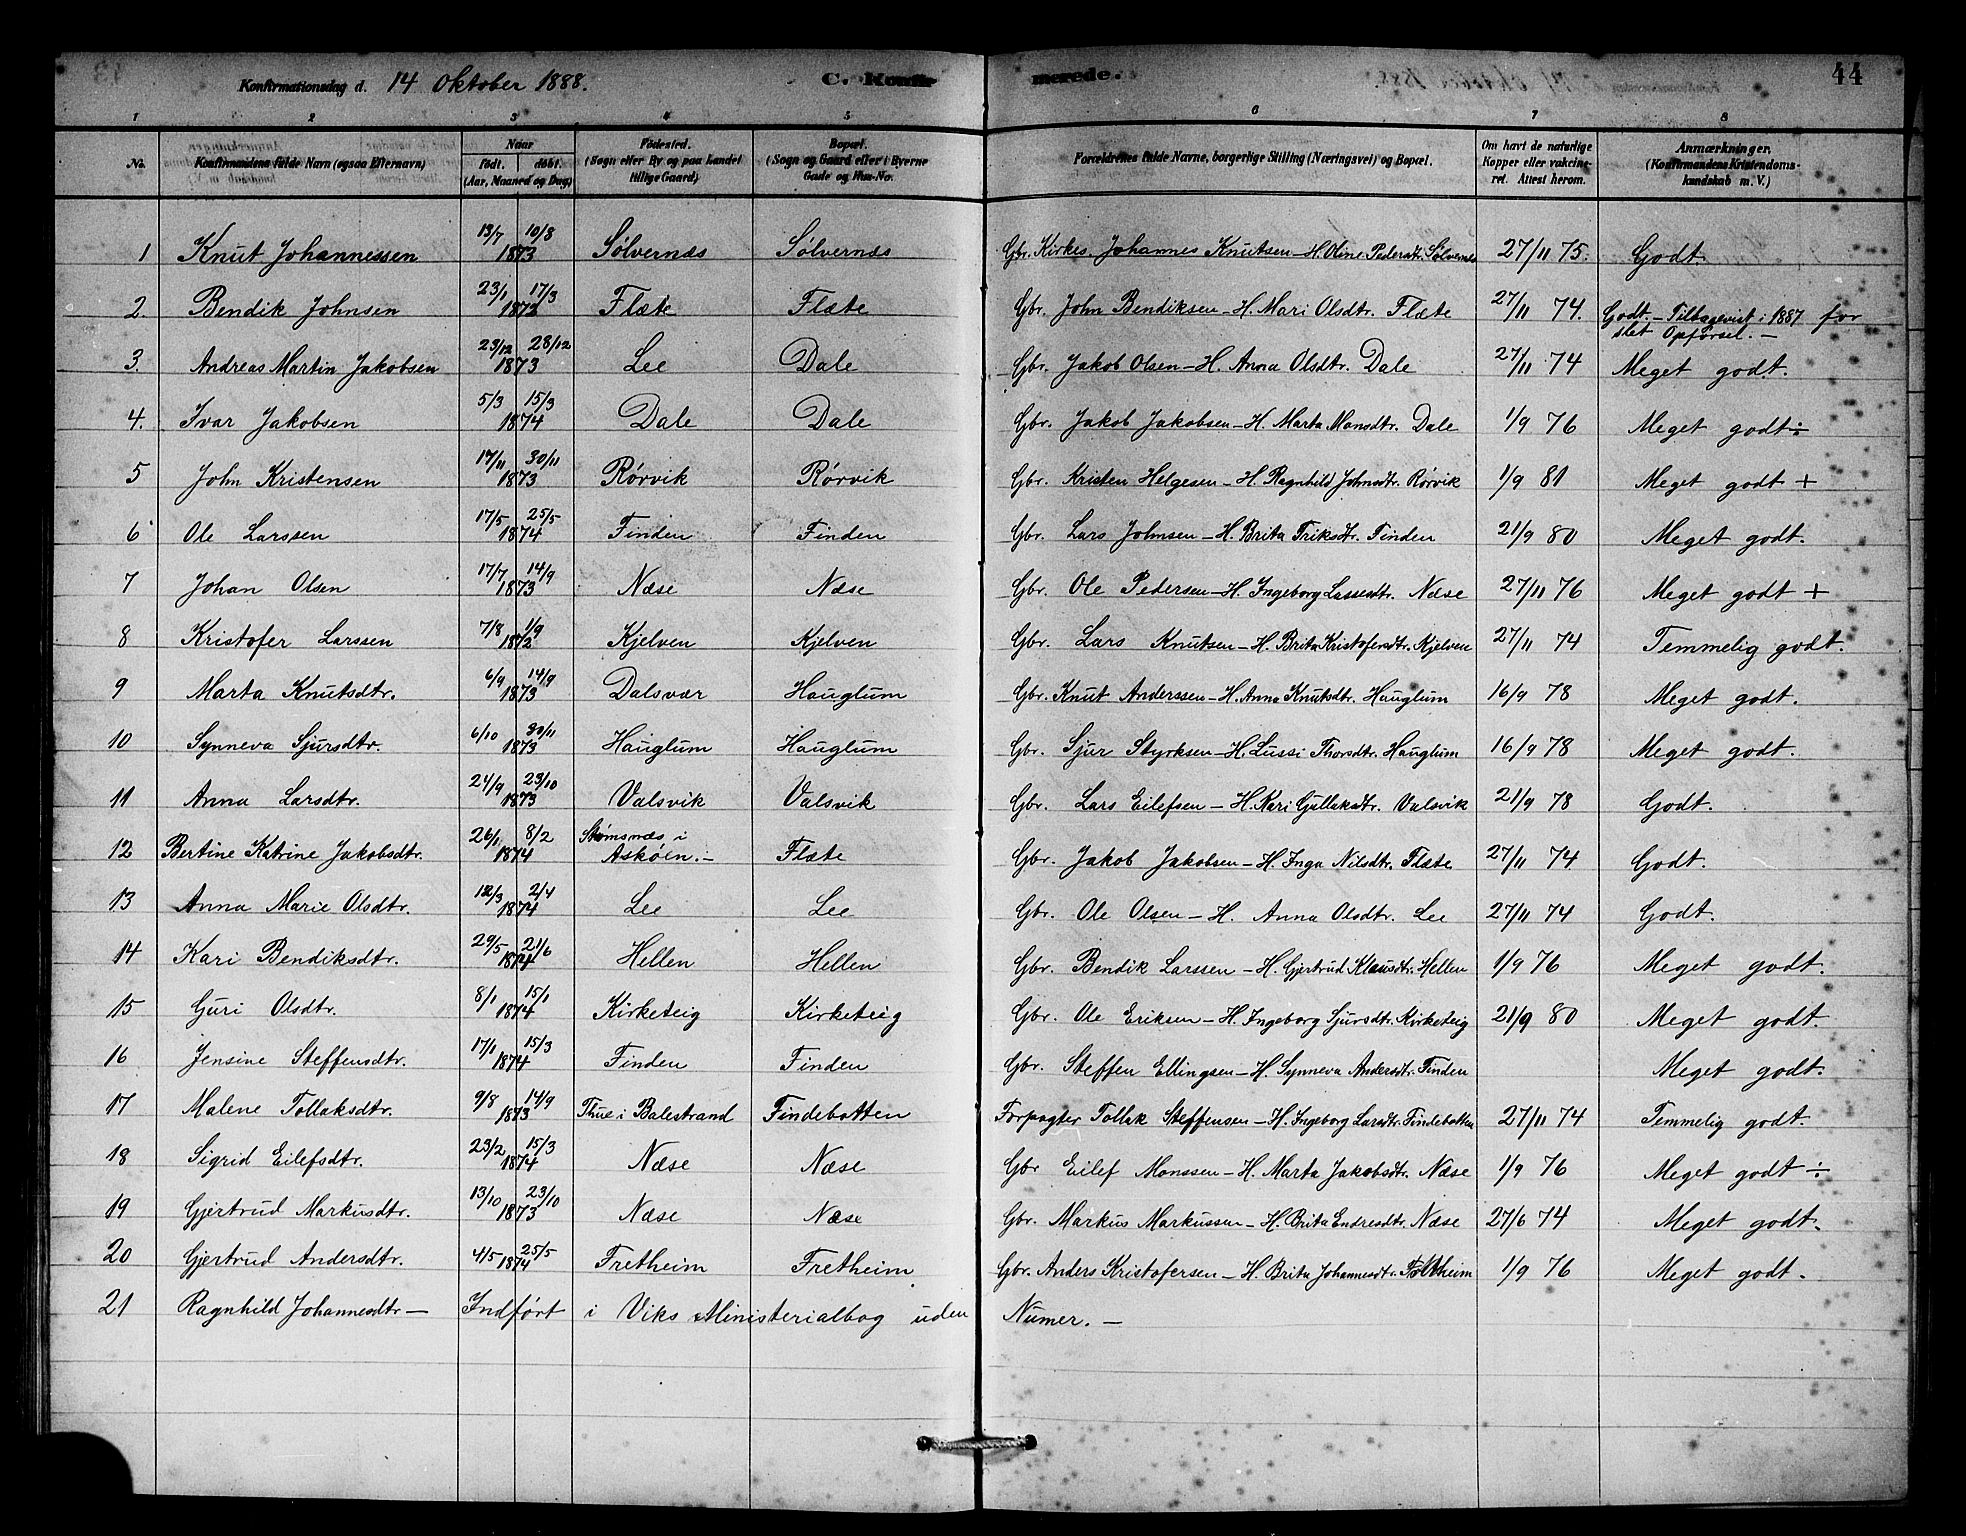 Konfirmationsdag d. 14 Oktober 1888. C. Konfirmerede. 44
1 2 3 4 5 6 7 8
No. Konfirmandens fulde Navn (ogsaa Efternavn) Naar født. døbt. (Aar, Maaned og Dag) Fødested. (Sogn eller By og paa Landet tillige Gaard) Bopæl. (Sogn og Gaard eller i Byerne Gade og Hus-No. Forældrenes fulde Navne, borgerlige Stilling (Næringsvei) og Bopæl. Om havt de naturlige Kopper eller vaccineret. Attest herom. Anmærkninger. (Konfirmandens Kristendomskundskab m. V.)
1 Knut Johannessen 13/7 10/8 1873 Sølvernæs Sølvernæs Gbr. Kirkes. Johannes Knutsen – H. Oline Pedersdtr. Sølvernæs 27/11 75. Godt.
2. Bendik Johnsen 23/1 17/3 1873 Flæte Flæte Gbr. John Bendiksen – H. Mari Olsdtr. Flæte 27/11 74. Godt. – Tilbagevist i 1887 for slet Opførsel. –
3. Andreas Martin Jakobsen 23/12 28/12 1873 Lee Dale Gbr. Jakob Olsen – H. Anna Olsdtr. Dale 27/11 74 Meget godt.
4. Ivar Jakobsen 5/3 15/3 1874 Dale Dale Gbr. Jakob Jakobsen – H. Marta Monsdtr. Dale 1/9 76 Meget godt ÷
5 John Kristensen 17/11 30/11 1873 Rørvik Rørvik Gbr. Kristen Helgesen – H. Ragnhild Johnsdtr. Rørvik 1/9 81 Meget godt +
6 Ole Larssen 17/5 25/5 1874 Finden Finden Gbr. Lars Johnsen – H. Brita Eriksdtr. Finden 21/9 80 Meget godt.
7 Johan Olsen 17/7 14/9 1873 Næse Næse Gbr. Ole Pedersen – H. Ingeborg Lassesdtr. Næse 27/11 76 Meget godt +
8 Kristofer Larssen 7/8 1/9 1872 Kjelven Kjelven Gbr. Lars Knutsen – H. Brita Kristofersdtr. Kjelven 27/11 74 Temmelig godt.
9 Marta Knutsdtr. 6/9 14/9 1873 Dalsvær Hauglum Gbr. Knut Anderssen – H. Anna Knutsdtr. Hauglum 16/9 78 Meget godt.
10 Synneva Sjursdtr. 6/10 30/11 1873 Hauglum Hauglum Gbr. Sjur Styrksen – H. Lussi Thorsdtr. Hauglum 16/9 78 Meget godt.
11 Anna Larsdtr. 24/9 23/10 1873 Valsvik Valsvik Gbr. Lars Eilefsen – H. Kari Gullaksdtr. Valsvik 21/9 78 Godt.
12 Bertine Katrine Jakobsdtr. 26/1 8/2 1874 Strømsnæs i Askøen. – Flæte Gbr. Jakob Jakobsen – H. Inga Nilsdtr. Flæte 27/11 74 Godt.
13 Anna Marie Olsdtr. 12/3 2/4 1874 Lee Lee Gbr. Ole Olsen – H. Anna Olsdtr. Lee 27/11 74 Godt.
14 Kari Bendiksdtr. 29/5 21/6 1874 Hellen Hellen Gbr. Bendik Larssen – H. Gjertrud Klausdtr. Hellen 1/9 76 Meget godt.
15 Guri Olsdtr. 8/1 15/1 1874 Kirketeig Kirketeig Gbr. Ole Eriksen – H. Ingeborg Sjursdtr. Kirketeig 21/9 80 Meget godt.
16 Jensine Steffensdtr. 17/1 15/3 1874 Finden Finden Gbr. Steffen Ellingsen – H. Synneva Andersdtr. Finden Meget godt.
17 Malene Tollaksdtr. 9/8 14/9 1873 Thue i Balestrand Findebotten Forpagter Tollak Steffensen – H. Ingeborg Larsdtr. Findebotten 27/11 74 Temmelig godt.
18 Sigrid Eilefsdtr. 23/2 15/3 1874 Næse Næse Gbr Eilef Monssen – H. Marta Jakobsdtr. Næse 1/9 76 Meget godt ÷
19 Gjertrud Markusdtr. 13/10 23/10 1873 Næse Næse Gbr. Markus Markussen – H. Brita Endresdtr. Næse 27/6 74 Meget godt.
20 Gjertrud Andersdtr. 4/5 25/5 1874 Fretheim Fretheim Gbr. Anders Kristofersen – H. Brita Johannesdtr. 1/9 76 Meget godt.
21 Ragnhild Johannesdtr – Indført i Viks Ministerialbog uden Numer. –